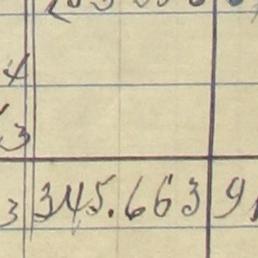 4
3
3 345.663 9